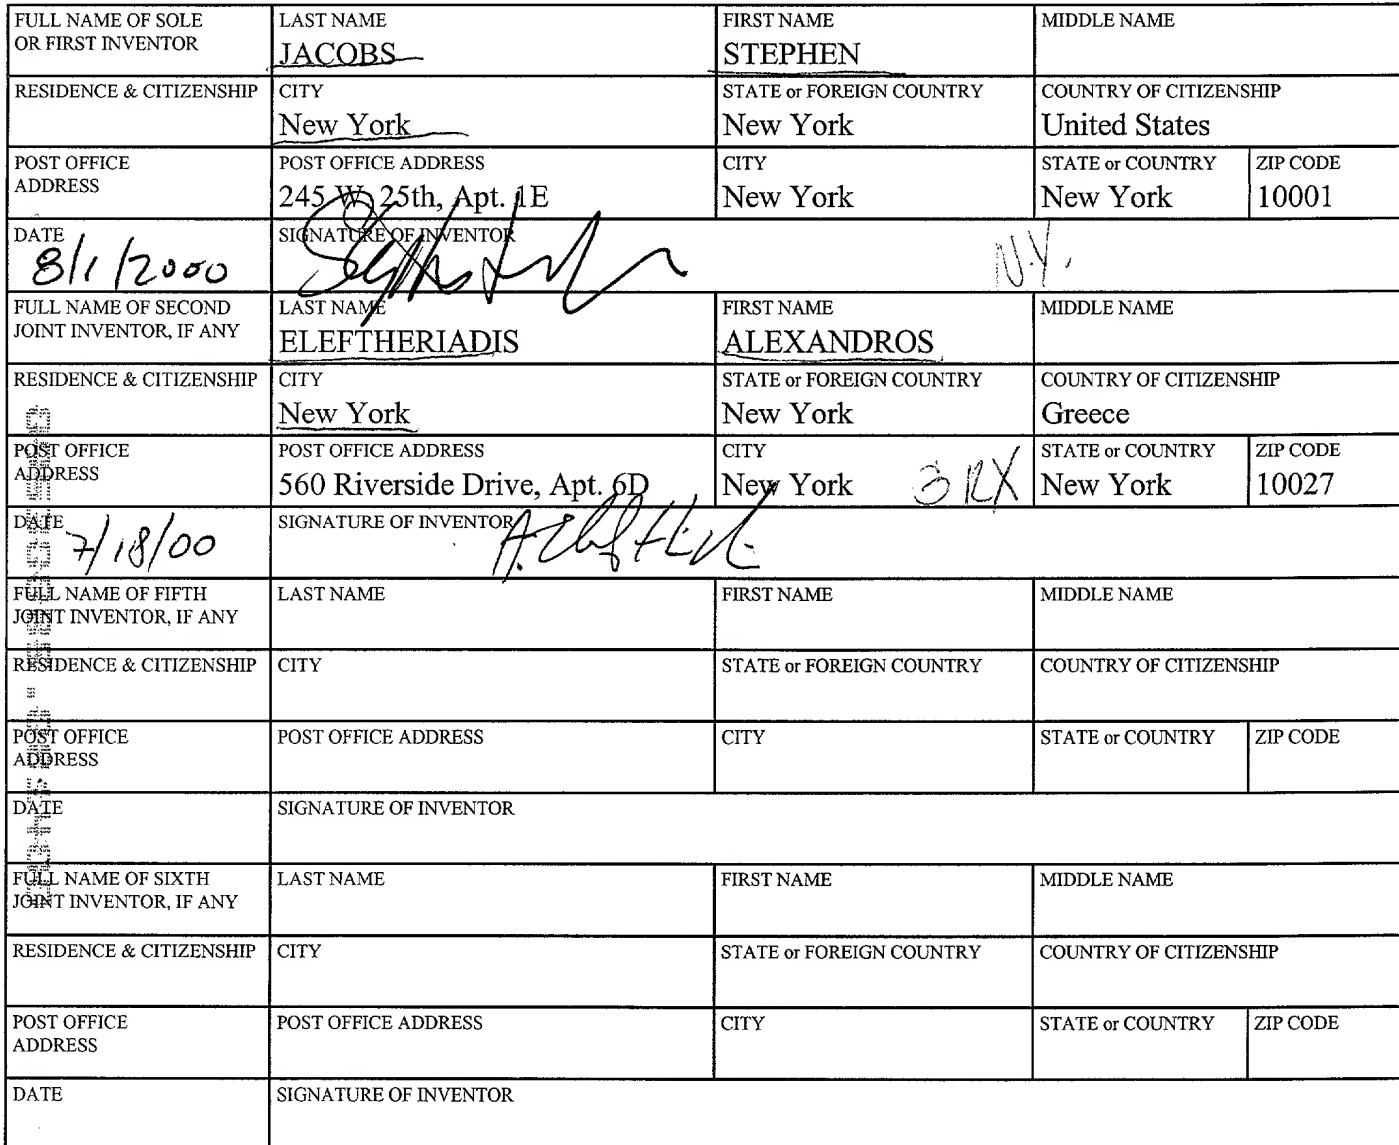 FULL NAME OF SOLE OR FIRST INVENTOR
LAST NAME
JACOBS
FIRST NAME
STEPHEN
MIDDLE NAME
RESIDENCE & CITIZENSHIP
CITY
New York
STATE or FOREIGN COUNTRY
New York
COUNTRY OF CITIZENSHIP
United States
POST OFFICE ADDRESS
POST OFFICE ADDRESS
245 W. 25th, Apt. 1E
CITY
New York
STATE or COUNTRY
New York
ZIP CODE
10001
DATE
8/1/2000
SIGNATURE OF INVENTOR
N.Y.
FULL NAME OF SECOND JOINT INVENTOR, IF ANY
LAST NAME
ELEFTHERIADIS
FIRST NAME
ALEXANDROS
MIDDLE NAME
RESIDENCE & CITIZENSHIP
CITY
New York
STATE or FOREIGN COUNTRY
New York
COUNTRY OF CITIZENSHIP
Greece
POST OFFICE ADDRESS
POST OFFICE ADDRESS
560 Riverside Drive, Apt. 6D
CITY
New York
STATE or COUNTRY
New York
ZIP CODE
10027
DATE
7/18/00
SIGNATURE OF INVENTOR
FULL NAME OF FIFTH JOINT INVENTOR, IF ANY
LAST NAME
FIRST NAME
MIDDLE NAME
RESIDENCE & CITIZENSHIP
CITY
STATE or FOREIGN COUNTRY
COUNTRY OF CITIZENSHIP
POST OFFICE ADDRESS
POST OFFICE ADDRESS
CITY
STATE or COUNTRY
ZIP CODE
DATE
SIGNATURE OF INVENTOR
FULL NAME OF SIXTH JOINT INVENTOR, IF ANY
LAST NAME
FIRST NAME
MIDDLE NAME
RESIDENCE & CITIZENSHIP
CITY
STATE or FOREIGN COUNTRY
COUNTRY OF CITIZENSHIP
POST OFFICE ADDRESS
POST OFFICE ADDRESS
CITY
STATE or COUNTRY
ZIP CODE
DATE
SIGNATURE OF INVENTOR